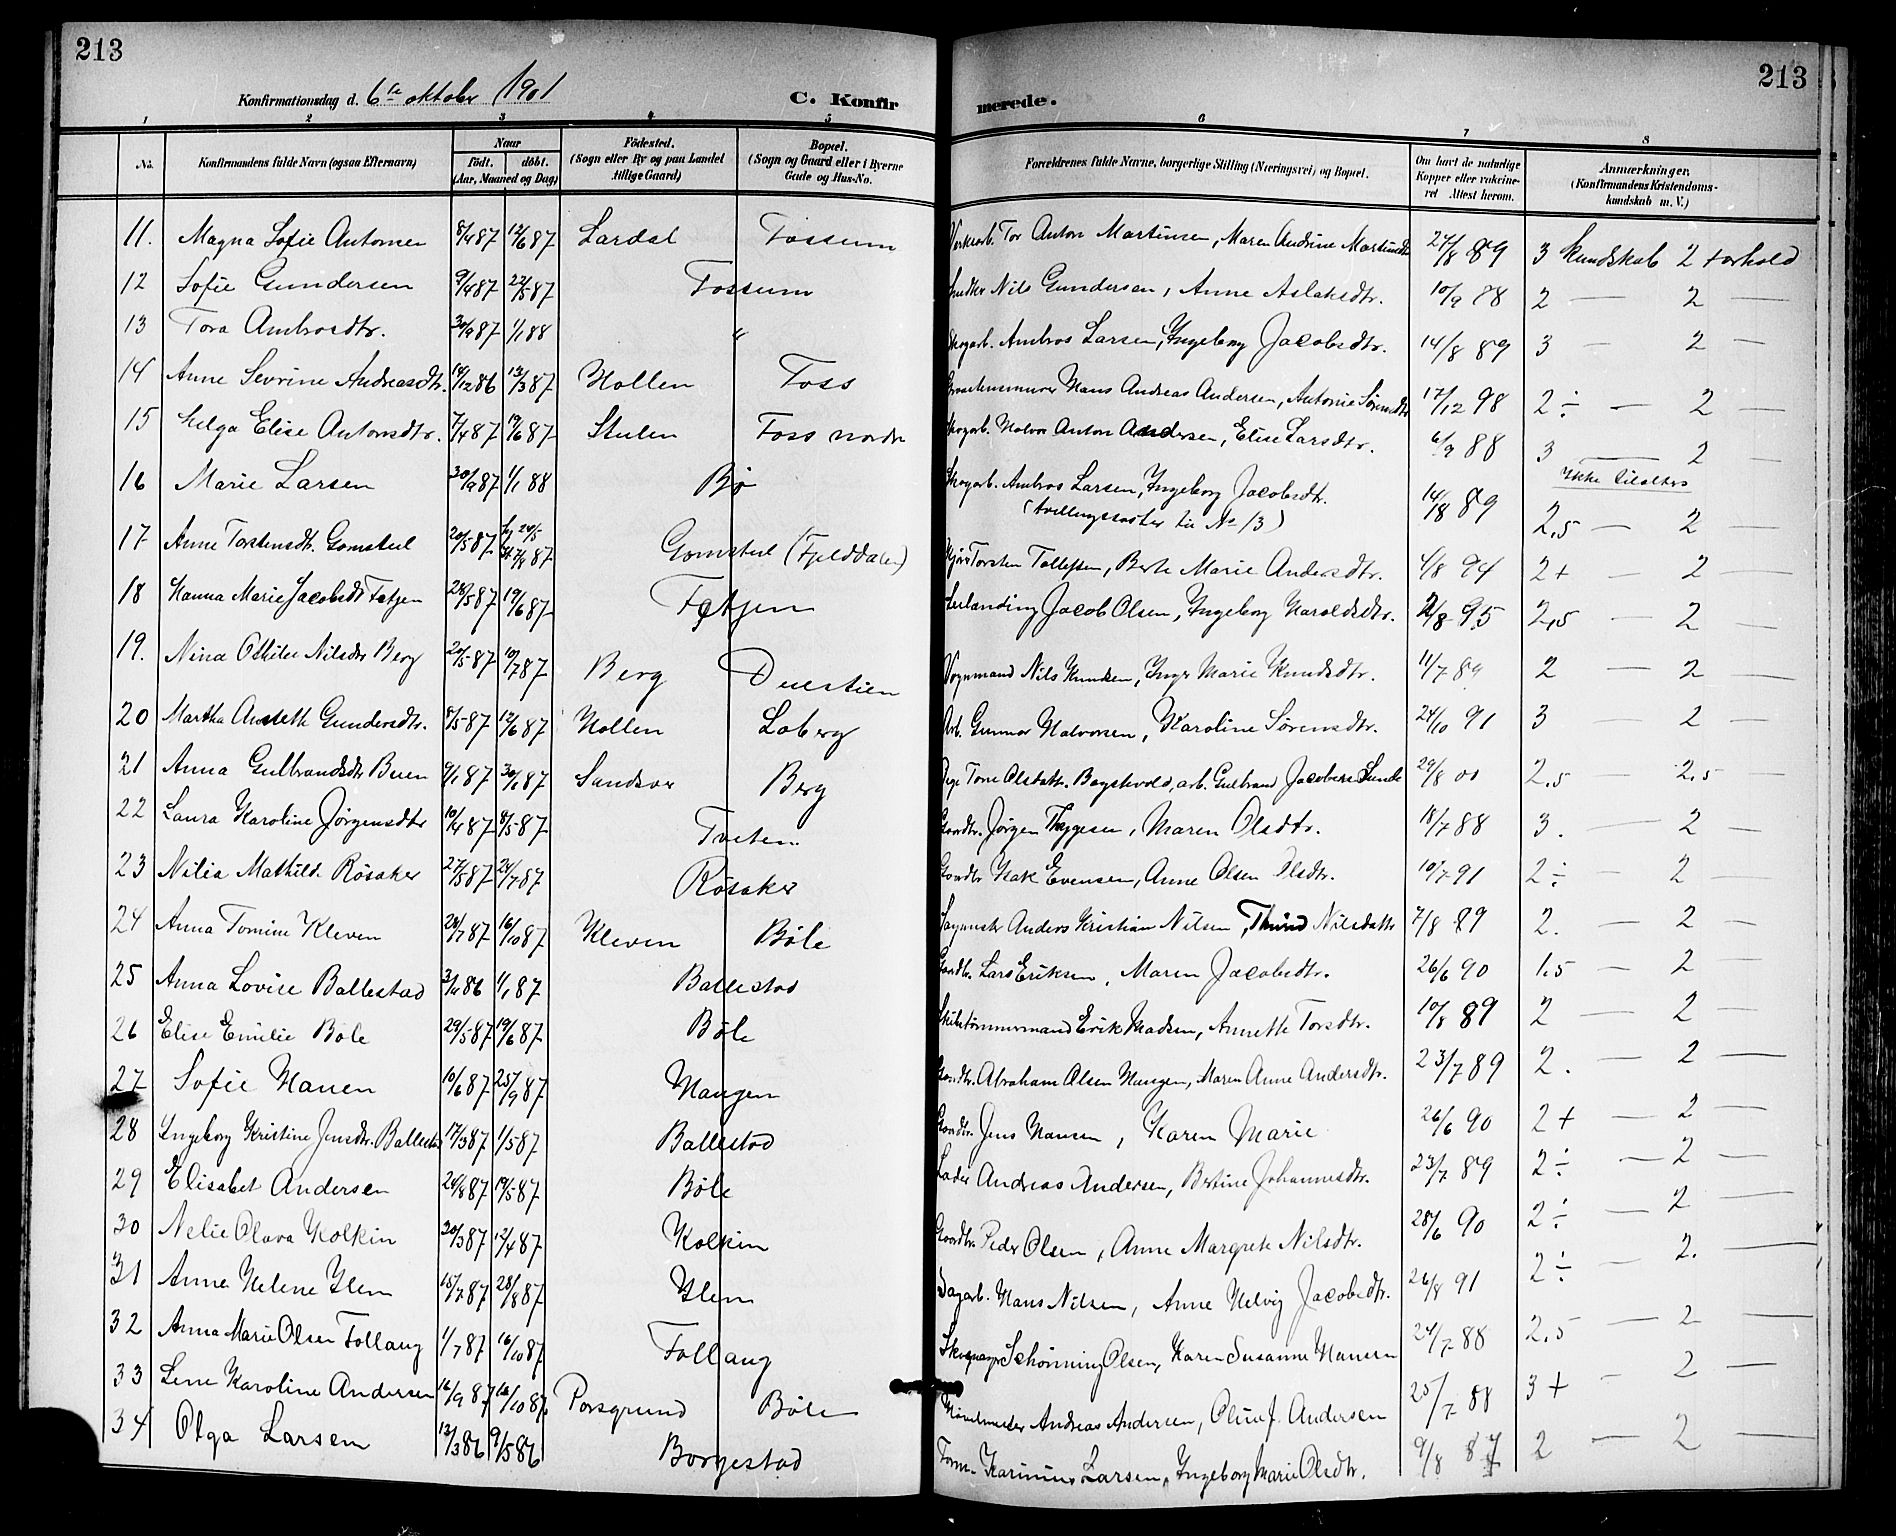 213
213
Konfirmationsdag d. 6te oktober 1901
C. Konfir
merede.
1 2 3 4 5 6 7 8
No.
Konfirmandens fulde Navn (ogsaa Efternavn)
Naar
födt. döbt.
(Aar, Maaned og Dag)
Födested.
(Sogn eller By og paa Landet
tillige Gaard)
Bopæl.
(Sogn og Gaard eller i Byerne
Gade og Hus-No.
Forældrenes fulde Navne, borgerlige Stilling (Næringsvei) og Bopæl.
Om havt de naturlige
Kopper eller vakcine-
ret Attest herom.
Anmærkninger,
(Konfirmandens Kristendoms-
kundskab m. V.)
11. Magna Sofie Antonsen 8/4 87 12/6 87 Lardal Fossum Verksarb. Tor Anton Martinsen, Maren Andrine Martinsdtr 27/8 89 3 Kundskab 2 forhold
12 Sofie Gundersen 9/4 87 22/5 87 Fossum Snedker Nils Gundersen, Anne Aslaksdtr. 10/9 88 2 — 2 —
13 Tora Ambrosdtr. 30/9 87 1/1 88 " Skogarb. Ambros Larsen, Ingeborg Jacobsdtr. 14/8 89 3 — 2 —
14 Anne Sevrine Andreasdtr. 14/12 86 13/3 87 Hollen Foss Hans Andreas Andersen, Antonie Sörensdtr 17/12 98 2 ÷ — 2 —
15 Helga Elise Antonsdtr. 7/4 87 19/6 87 Stulen Foss nordr Skogarb. Halvor Anton Andersen, Elise Larsdtr. 6/9 88 3 — 2 —
16 Marie Larsen 30/9 87 1/1 88 Bö Skogarb. Ambros Larsen, Ingeborg Jacobsdtr. 14/8 89 2,5 — 2 —
(tvillingsöster til No 13)
17 Anne Torstensdtr. Gomsteul 20/5 87 Gomsteul (Fjelddalen) Torsten Tollefsen, Berte Marie Andersdtr. 4/8 94 2+ — 2 —
18 Hanna Marie Jacobsdt Fætjen 28/5 87 19/6 87 Fætjen Leilænding Jacob Olsen, Ingeborg Haroldsdtr. 2/8 95 2,5 — 2 —
19. Nina Othilie Nilsdtr Berg 20/5 87 10/7 87 Berg Duestien Vognmand Nils Knudsen, Inger Marie Knudsdtr. 11/7 89 2 — 2 —
20 Martha Anseth Gundersdtr. 8/5 87 12/6 87 Hollen Loberg Arb. Gunnar Halvorsen, Karoline Sörensdtr. 24/10 91 3 — 2 —
21 Anna Gulbrandsdtr Buen 9/1 87 30/1 87 Sandsvær Berg Pige Tone Olsdatter Bagstevold, arb. Gulbrand Jacobsen Lunde 29/8 00 2,5 — 2,5 —
22 Laura Karoline Jörgensdtr 10/4 87 8/5 87 Tveten Gaardbr. Jörgen Thygesen, Maren Olsdtr. 18/7 88 3. — 2 —
23 Nilia Mathild. Rösaker 27/5 87 24/7 87 Rösaker Gaardbr Evensen, Anne Olsen Olsdtr. 10/7 91 2 ÷ — 2 —
24 Anna Tomine Kleven 28/7 87 16/10 87 Kleven Böle Sagmester Anders Kristian Nilsen, Thurid Nilsdatter 7/8 89 2. — 2 —
25 Anna Lovise Ballestad 3/11 86 1/1 87 Ballestad Gaardb. Lars Eriksen, Maren Jacobsdtr. 26/6 90 1,5 — 2 —
26 Elise Emilie Böle 29/5 87 19/6 87 Böle Skibstömmermand Erik Madsen, Annette Torsdtr. 10/8 89 2 — 2 —
27 Sofie Hauen 10/6 87 25/9 87 Haugen Gaardbr. Abraham Olsen Haugen, Maren Anne Andersdtr. 23/7 89 2. — 2 —
28 Ingeborg Kristine Jensdtr. Ballestad 17/3 87 1/5 87 Ballestad Gaardbr. Jens Hansen, Karen Marie 26/6 90 2+ — 2 —
29 Elisabet Andersen 24/3 87 19/5 87 Böle Andreas Andersen, Bertine Johannesdtr. 23/7 89 2 ÷ — 2 —
30 Nelie Olava Kolkin 20/3 87 12/4 87 Kolkin Gaardbr. Peder Olsen, Anne Margrete Nilsdtr. 28/6 90 2 ÷ — 2 —
31 Anne Helene Ilem 15/7 87 28/8 87 Ilem Sagarb. Hans Nilsen, Anne Helvig Jacobsdtr. 26/8 91 2 ÷ — 2. —
32 Anna Marie Olsen Follaug 1/7 87 16/10 87 Follaug Schönning Olsen, Karen Susanne Hansen 24/7 88 2,5 — 2 —
33 Lene Karoline Andersen 16/9 87 16/10 87 Porsgrund Böle Andreas Andersen, Oluf. Andersen 25/7 88 3+ — 2 —
34 Olga Larsen 13/3 86 9/5 86 Borgestad Larsen, Ingeborg Marie Olsdtr. 9/8 87 2 — 2 —